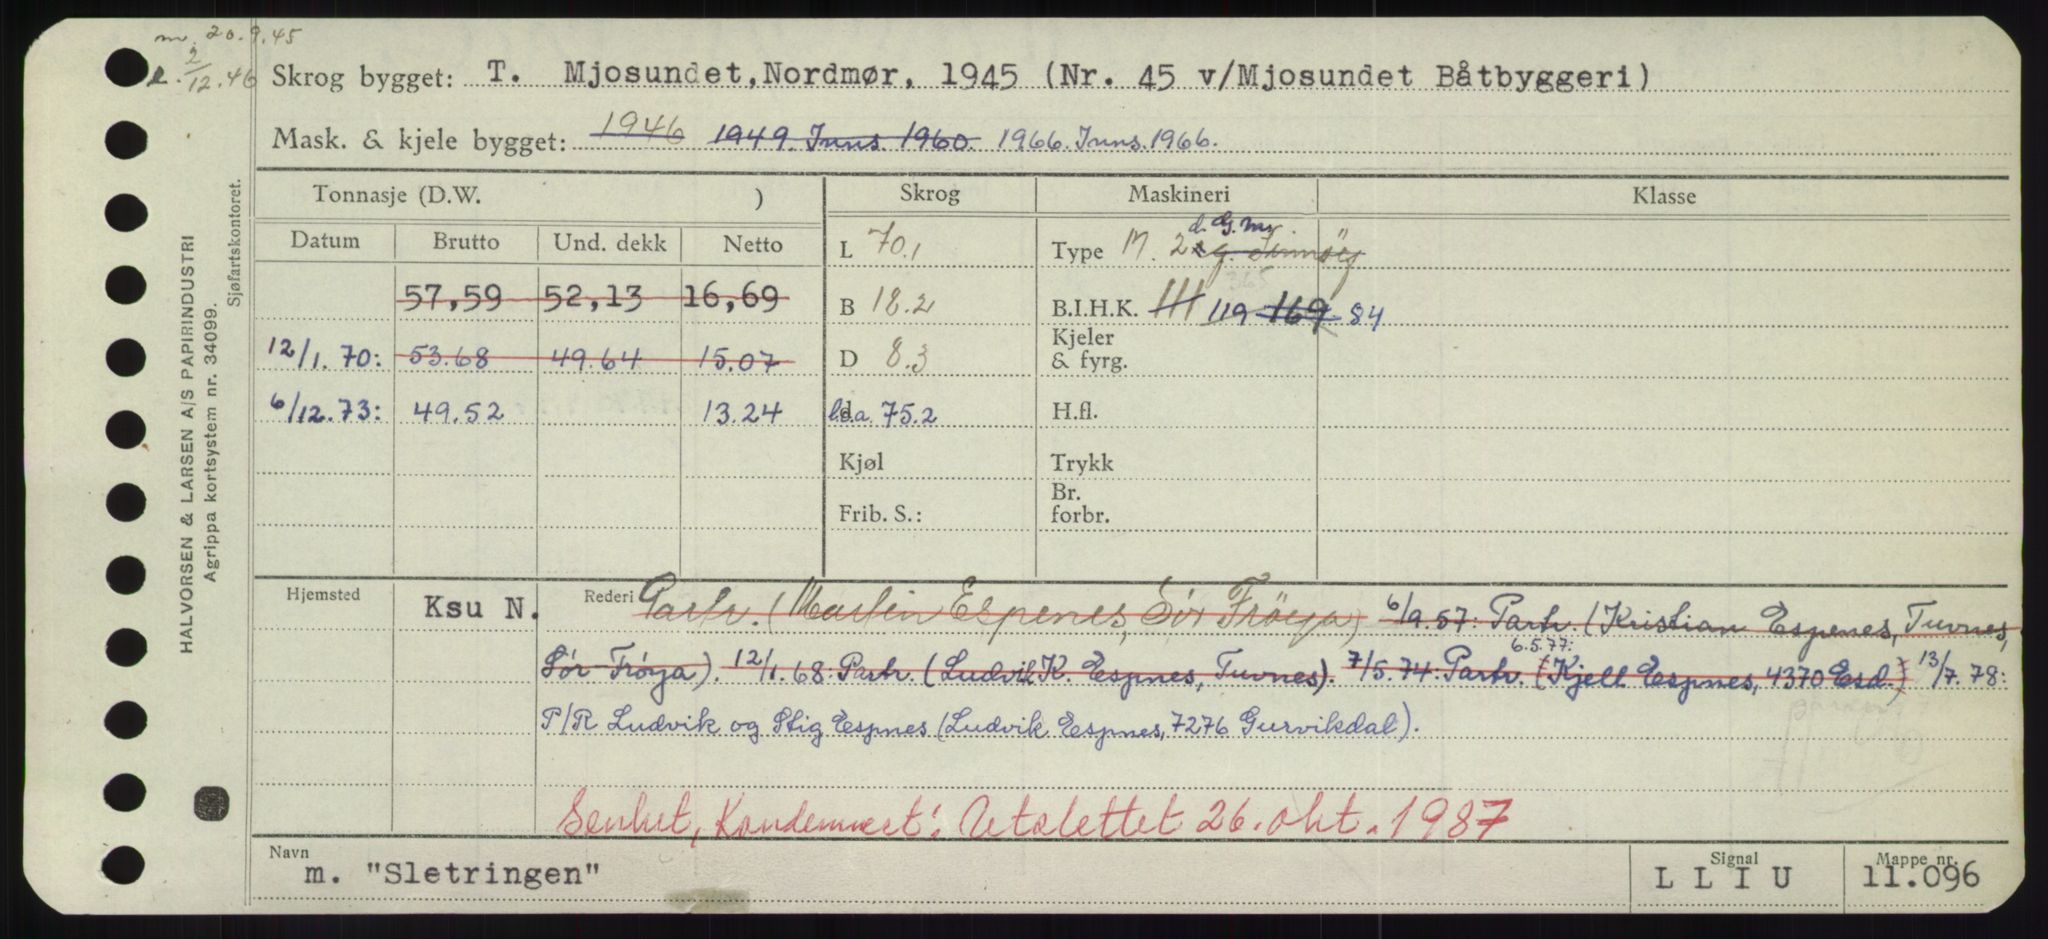 m. 20.9.45
2/12.46
Skrog bygget: T. Mjosundet, Nordmør, 1945 (Nr. 45 v/Mjosundet Båtbyggeri)
Mask. & kjele bygget: 1946 1949. Inns. 1960. 1966. Inns. 1966.
Tonnasje (D.W. ) Skrog Maskineri Klasse
Datum Brutto Und. dekk Netto
L 70.1 Type M. 2 d. G. m.
57,59 52,13 16,69
B 18.2 B.I.H.K. 111 119 169 84
12/1. 70: 53.68 49.64 15.07
D 8.3 Kjeler & fyrg.
6/12.73: 49.52 13.24
d l.o.a. 75.2 H.fl.
Kjøl Trykk
Frib. S.: Br. forbr.
Hjemsted Ksu N. Rederi Partr. (Martin Espenes, Sör Fröya) 6/9.57: Partr. (Kristian Espenes, Tuvnes,
Sør-Frøya). 12/1.68: Partr. (Ludvik K. Espnes, Tuvnes). 7/5.74: Partr. 6.5.77: (Kjell Espnes, 4370 Esd.) 13/7.78:
P/R Ludvik og Stig Espnes (Ludvik Espnes, 7276 Gurvikdal).
Senket, Kondemnert: Utslettet 26. okt. 1987
Navn m. "Sletringen" Signal L L I U Mappe nr. 11.096
HALVORSEN & LARSEN A/S PAPIRINDUSTRI
Agrippa kortsystem nr. 34099.
Sjøfartskontoret.